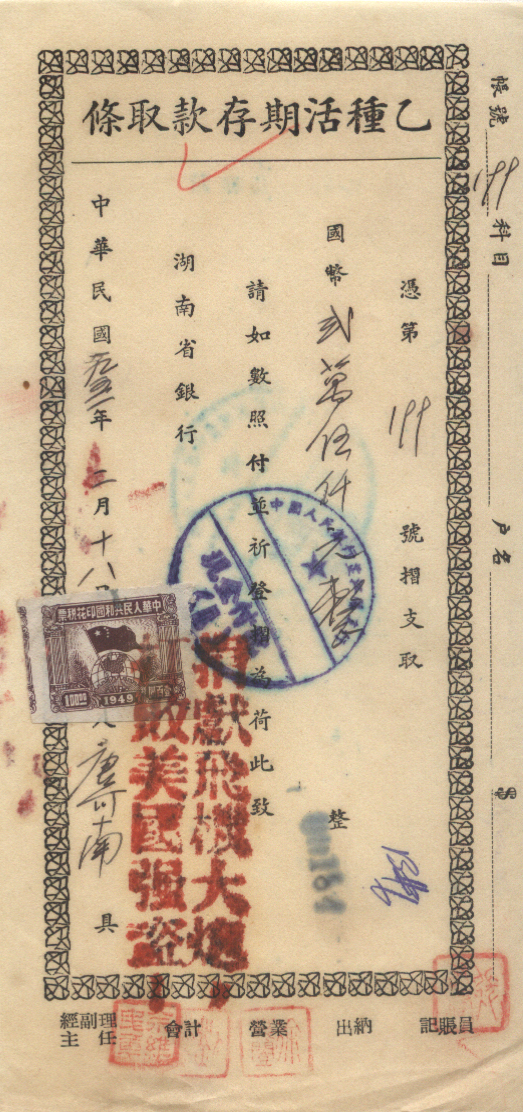 帳號 199 科目 户名 $
乙種活期存款取條
憑第 199 號摺支取
國幣 弍萬伍仟元整 整
請如數照付並祈登摺為荷此致
湖南省銀行
中華民國 一九五二年 二月十八日
具
中國人民
現金付訖
中華人民共和國印花稅票
1949
捐獻飛機大炮
打敗美國强盜
經副理
主任
會計
營業
出納
記賬員